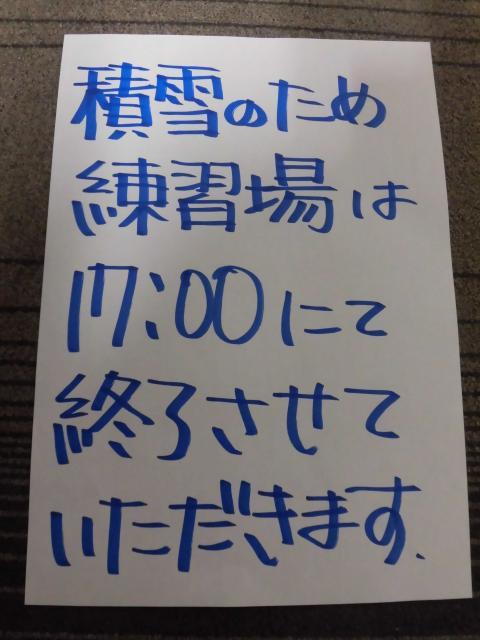 積雪のため
練習場は
17:00にて
終了させて
いただきます.